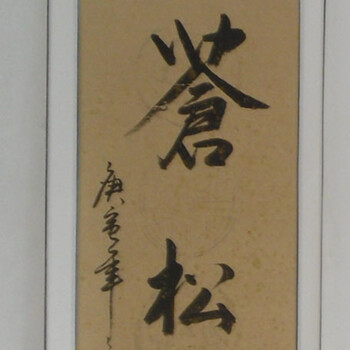 蒼松
庚寅年